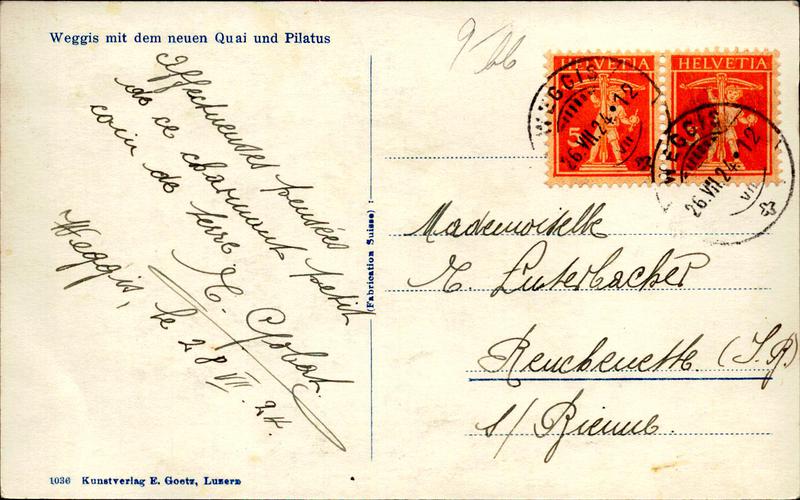 Weggis mit dem neuen Quai und Pilatus
Affectueuses pensées
de ce charmant petit
coin de terre
Weggis, le 28 VII. 24.
HELVETIA
HELVETIA
5
WEGGIS
26.VII.24·12
VII
WEGGIS
26.VII.24·12
VII
(Fabrication Suisse)
Mademoiselle
Luterbacher
Reuchenette (J.B)
s/Bienne.
1036 Kunstverlag E. Goetz, Luzern